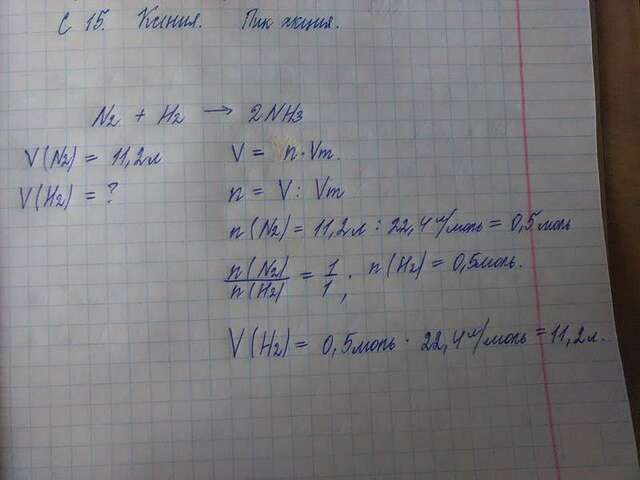 С 15. Химия. Пик акция.
N2 + H2 → 2NH3
V(N2) = 11,2л
V = n·Vm.
V(H2) = ?
n = V : Vm
n(N2) = 11,2л : 22,4 л/моль = 0,5моль
n(N2)/n(H2) = 1/1; n(H2) = 0,5моль.
V(H2) = 0,5моль · 22,4 л/моль = 11,2л.